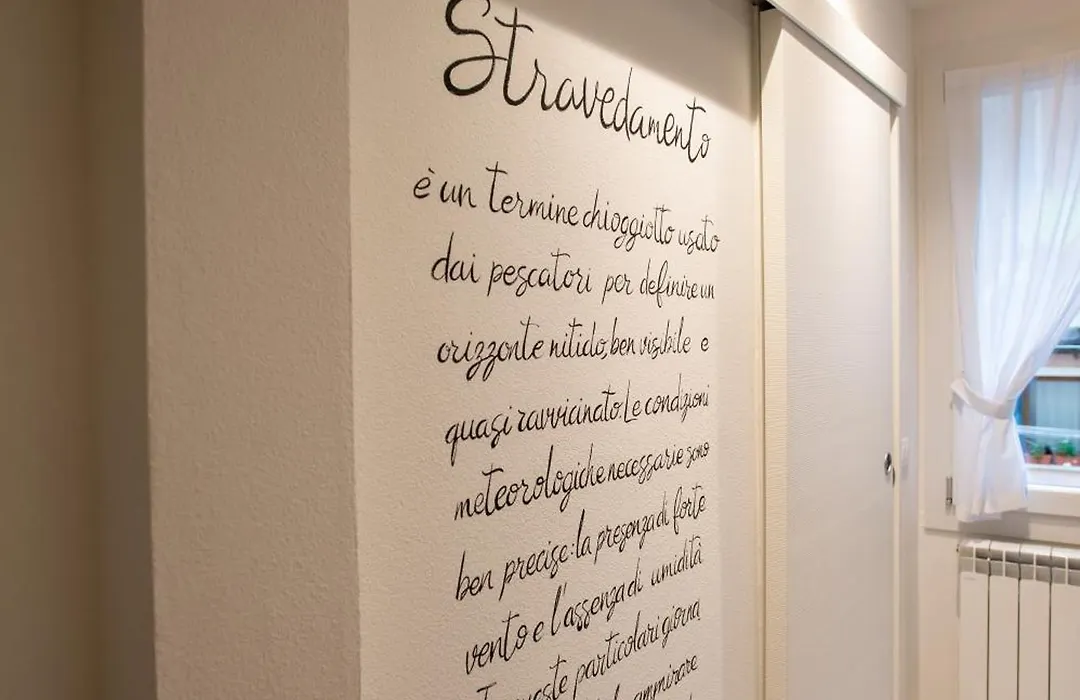 Stravedamento
è un termine chioggiotto usato
dai pescatori per definire un
orizzonte nitido, ben visibile e
quasi ravvicinato. Le condizioni
meteorologiche necessarie sono
ben precise: la presenza di forte
vento e l'assenza di umidità
particolari giorna
ammirare